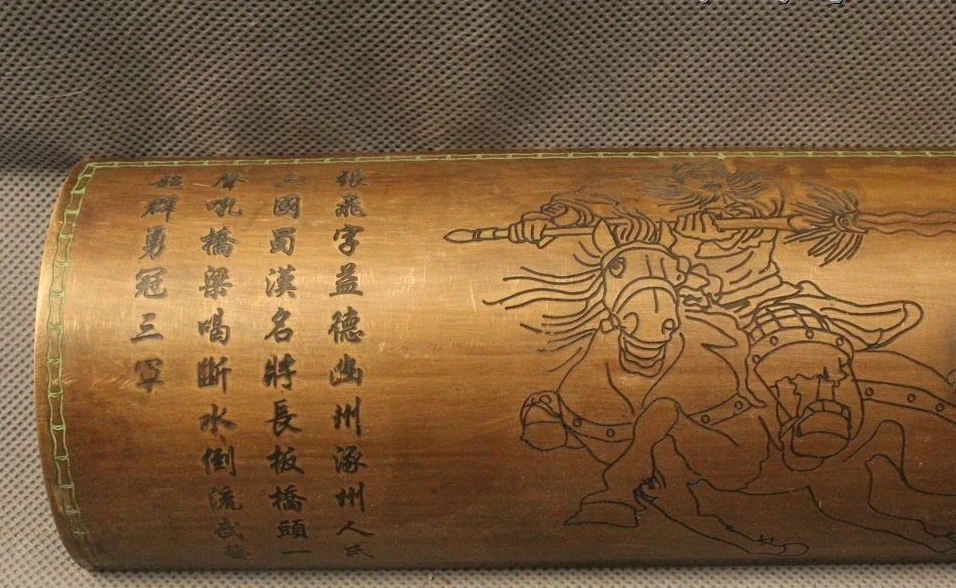 張飛字益德幽州涿州人氏
三國蜀漢名將長板橋頭一
聲吼橋梁喝斷水倒流武藝
超群勇冠三軍